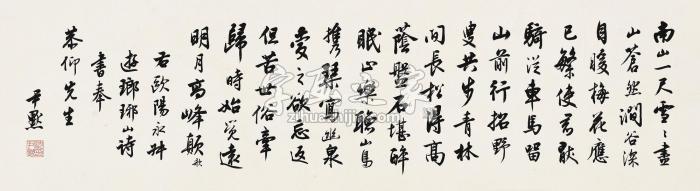 南山一尺雪〻盡
山蒼然澗谷深
自暖梅花應
已繁使君厭
騎從車馬留
山前行招野
叟共步青林
間長松得高
蔭盤石堪醉
眠止樂聽山鳥
攜琴寫幽泉
愛之欲忘返
但苦世俗牽
歸時始覺遠
明月高峰顛 歌
右歐陽永叔
遊瑯琊山詩
書奉
恭仰先生
尹默